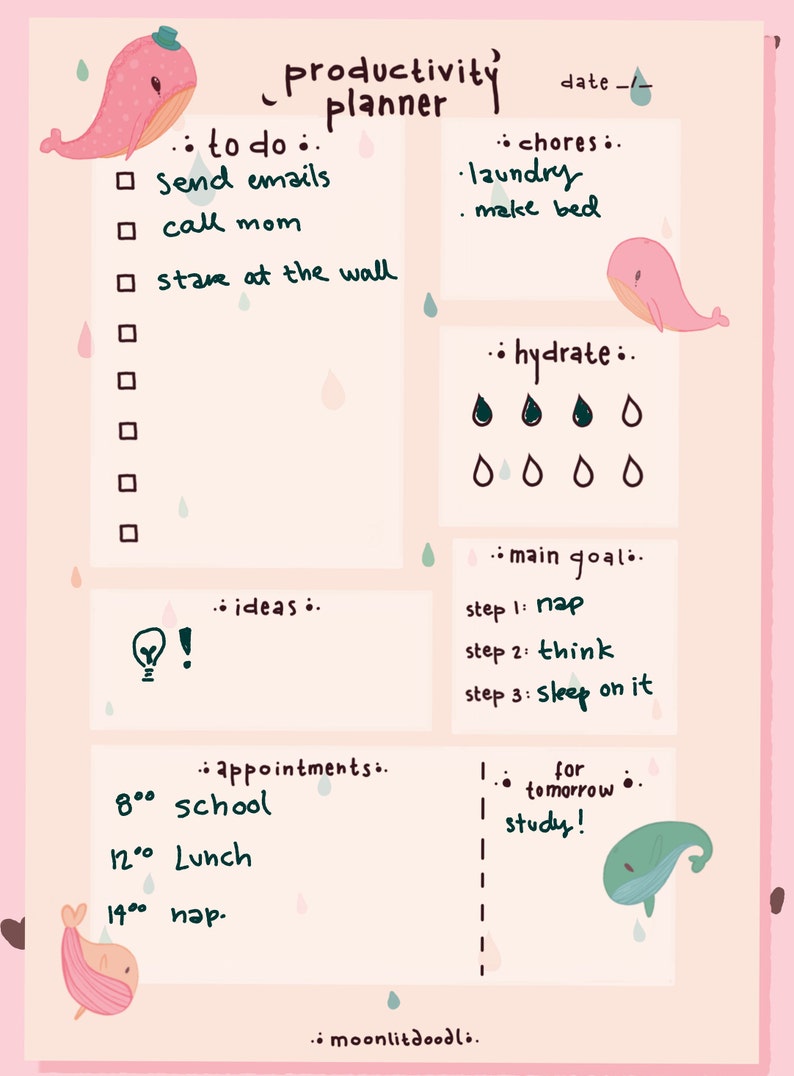 productivity
planner
date _/_
to do
send emails
call mom
stare at the wall
chores
· laundry
· make bed
hydrate
ideas
!
main goal
step 1: nap
step 2: think
step 3: sleep on it
appointments
8⁰⁰ school
12⁰⁰ Lunch
14⁰⁰ nap.
for
tomorrow
study!
moonlitdoodl